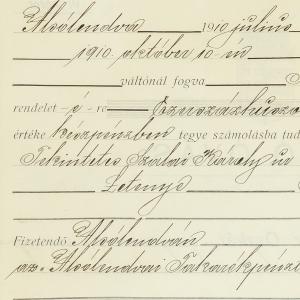 Alsólendva 1910 julius
1910. október 10-én
váltónál fogva
rendelet -é- re Ezerszázhúszo
értéke készpénzben tegye számolásba tud
Tekintetes Szalai Károly úr
Letenye
Fizetendő Alsólendván
az Alsólendvai Takarékpénzt